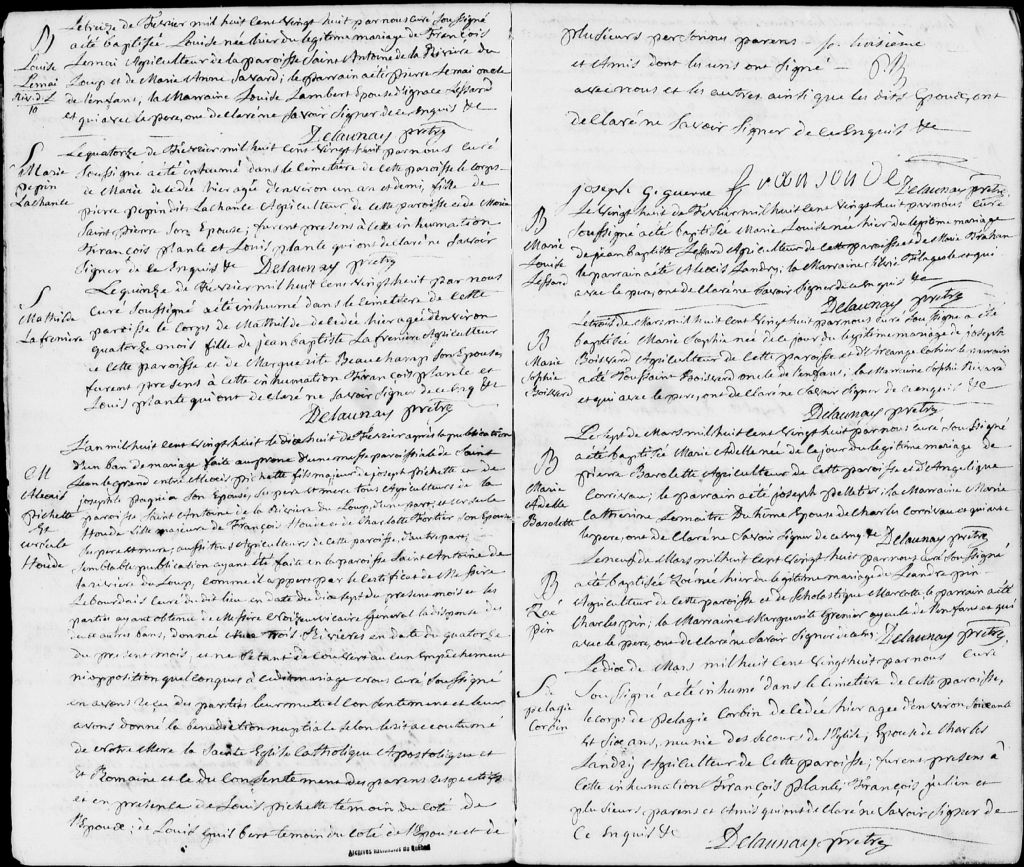 Le treize de Fevrier mil huit cent vingt huit par nous curé soussigné
B
Louise
Lemai
Riv. d. L
10
a été baptisée Louise née hier du legitime mariage de François
Lemai Agriculteur de la paroisse Saint Antoine de la Riviere du
Loup et de Marie Anne Savard; le parrain a été pierre Lemai oncle
de l'enfant, la Marraine Louise Lambert Epouse d'Ignace Lessard
et qui avec le pere, ont declaré ne savoir signer de ce Enquis &c
Delaunay prêtre
S
Marie
Pepin
Lachance
Le quatorze de Fevrier mil huit cent vingt huit par nous curé
soussigné a été inhumé dans le cimetiere de cette paroisse le corps
de Marie decedée hier agée d'environ un an et demi, fille de
pierre pepin dit Lachance Agriculteur de cette paroisse et de Marie
Saint Pierre son Epouse; furent presens à cette inhumation
François plante et Louis plante qui ont declaré ne savoir
signer de ce Enquis &c Delaunay prêtre
S
Mathilde
Lafreniere
Le quinze de Fevrier mil huit cent vingt huit par nous
curé soussigné a été inhumé dans le cimetiere de cette
paroisse le corps de Mathilde decedée hier agée d'environ
quatorze mois fille de jean baptiste Lafreniere Agriculteur
de cette paroisse et de Marguerite Beauchamp son Epouse,
furent presens à cette inhumation François plante et
Louis plante qui ont declaré ne savoir signer de ce Enq &c
Delaunay prêtre
M
Alexis
pichette
Et
ursule
Houde
L'an mil huit cent vingt huit le dix huit de Fevrier après la publication
d'un ban de mariage faite au prone d'une messe paroissiale de Saint
Leon le grand entre Alexis pichette fils majeur de joseph pichette et de
josephte son Epouse, ses pere et mere tous Agriculteurs de la
paroisse Saint Antoine de la Riviere du Loup, d'une part; et ursule
Houde fille majeure de François Houde et de Charlotte Fortier son Epouse
ses pere et mere, aussi tous Agriculteurs de cette paroisse, d'autre part;
semblable publication ayant été faite en la paroisse Saint Antoine de
la riviere du Loup, comme il appert par le certificat de Messire
Lebourdais curé du dit lieu en date du dix sept du present mois et les
parties ayant obtenu de Messire vicaire General la dispense des
deux autres bans, donnée aux Trois Rivieres en date du quatorze
du present mois, et ne s'etant decouvert aucun Empêchement
ni opposition quelconques à ce dit mariage Nous curé soussigné
en avons reçu des parties leur mutuel consentement et leur
avons donné la benediction nuptiale selon le rit accoutumé
de Notre Mere la Sainte Eglise Catholique Apostolique et
Romaine et ce du consentement des parens respectifs
et en presence de Louis pichette temoin du coté de
l'Epoux; de Louis Guilbert temoin du coté de l'Epouse et de
Archives nationales du Québec
plusieurs personnes parens
troisieme
et Amis dont les uns ont signé
avec nous et les autres ainsi que les dits Epoux, ont
declaré ne savoir signer de ce Enquis &c
joseph Giguerre
Delaunay prêtre
B
Marie
Louise
Lessard
Le vingt huit de Fevrier mil huit cent vingt huit par nous curé
soussigné a été baptisée Marie Louise née hier du legitime mariage
de jean baptiste Lessard Agriculteur de cette paroisse et de Marie
le parrain a été Alexis Landry; la Marraine et qui
avec le pere, ont declaré ne savoir signer de ce Enquis &c
Delaunay prêtre
B
Marie
Sophie
Boisverd
Le trois de Mars mil huit cent vingt huit par nous curé soussigné a été
baptisée Marie Sophie née de ce jour du legitime mariage de joseph
Boisverd Agriculteur de cette paroisse et d'Archange le parrain
a été Toussaint Boisverd oncle de l'enfant; la Marraine Sophie Rivard
et qui avec le pere, ont declaré ne savoir signer de ce enquis &c
Delaunay prêtre
B
Marie
Adelle
Barolette
Le sept de Mars mil huit cent vingt huit par nous curé soussigné
a été baptisée Marie Adelle née de ce jour du legitime mariage de
pierre Barolette Agriculteur de cette paroisse et d'Angelique
Corriveau; le parrain a été joseph pelletier; la Marraine Marie
Catherine Lemaitre Duhême Epouse de Charles Corriveau et qui avec
le pere, ont declaré ne savoir signer de ce enq &c Delaunay prêtre
B
Zoé
pin
Le neuf de Mars mil huit cent vingt huit par nous curé soussigné
a été baptisée Zoé née hier du legitime mariage de Leandre pin
Agriculteur de cette paroisse et de Scholastique Marcotte; le parrain a été
Charles pin; la Marraine Marguerite Grenier ayeule de l'enfant et qui
avec le pere, ont declaré ne savoir signer de ce Delaunay prêtre
S
de
pelagie
Corbin
Le dix de Mars mil huit cent vingt huit par nous curé
soussigné a été inhumé dans le cimetiere de cette paroisse,
le corps de Pelagie Corbin decedée hier agée d'environ soixante
et six ans, munie des secours de l'Eglise; Epouse de Charles
Landry Agriculteur de cette paroisse; furent presens à
cette inhumation François plante, François julien et
plusieurs parens et Amis qui ont declaré ne savoir signer de
ce Enquis &c
Delaunay prêtre